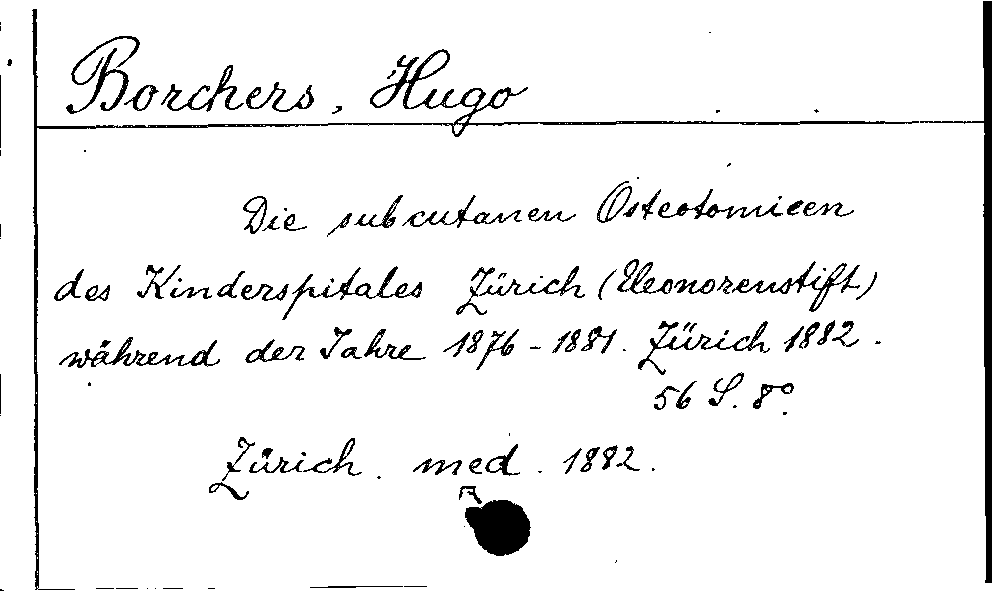 Borchers, Hugo
Die subcutanen Osteotomieen
des Kinderspitales Zürich (Eleonorenstift)
während der Jahre 1876-1881. Zürich 1882.
56 S. 8°.
Zürich. med. 1882.